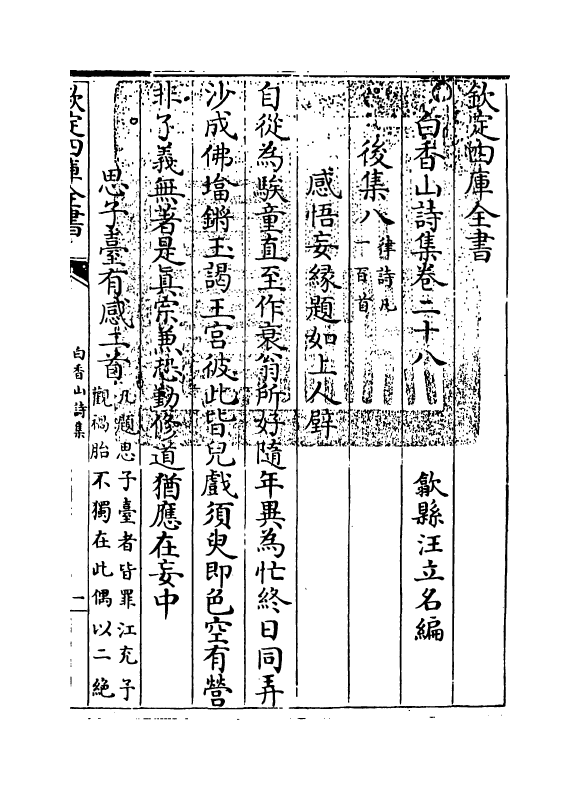 欽定四庫全書
白香山詩集卷二十八　歙縣汪立名編
後集八律詩凡一百首
感悟妄縁題如上人壁
自從為騃童直至作衰翁所好隨年異為忙終日同弄
沙成佛塔鏘玉謁王宫彼此皆兒戲須臾即色空有營
非了義無著是真宗兼恐勤修道猶應在妄中
思子臺有感二首凡題思子臺者皆罪江充予
觀禍胎不獨在此偶以二絶
欽定四庫全書
白香山詩集
一